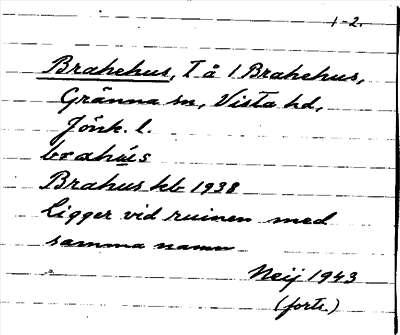 1-2.
Brahehus, T å 1 Brahehus,
Gränna sn, Vista hd,
Jönk. l.
brahús
Brahus kb 1938
Ligger vid ruinen med
samma namn
Neij 1943
(forts.)